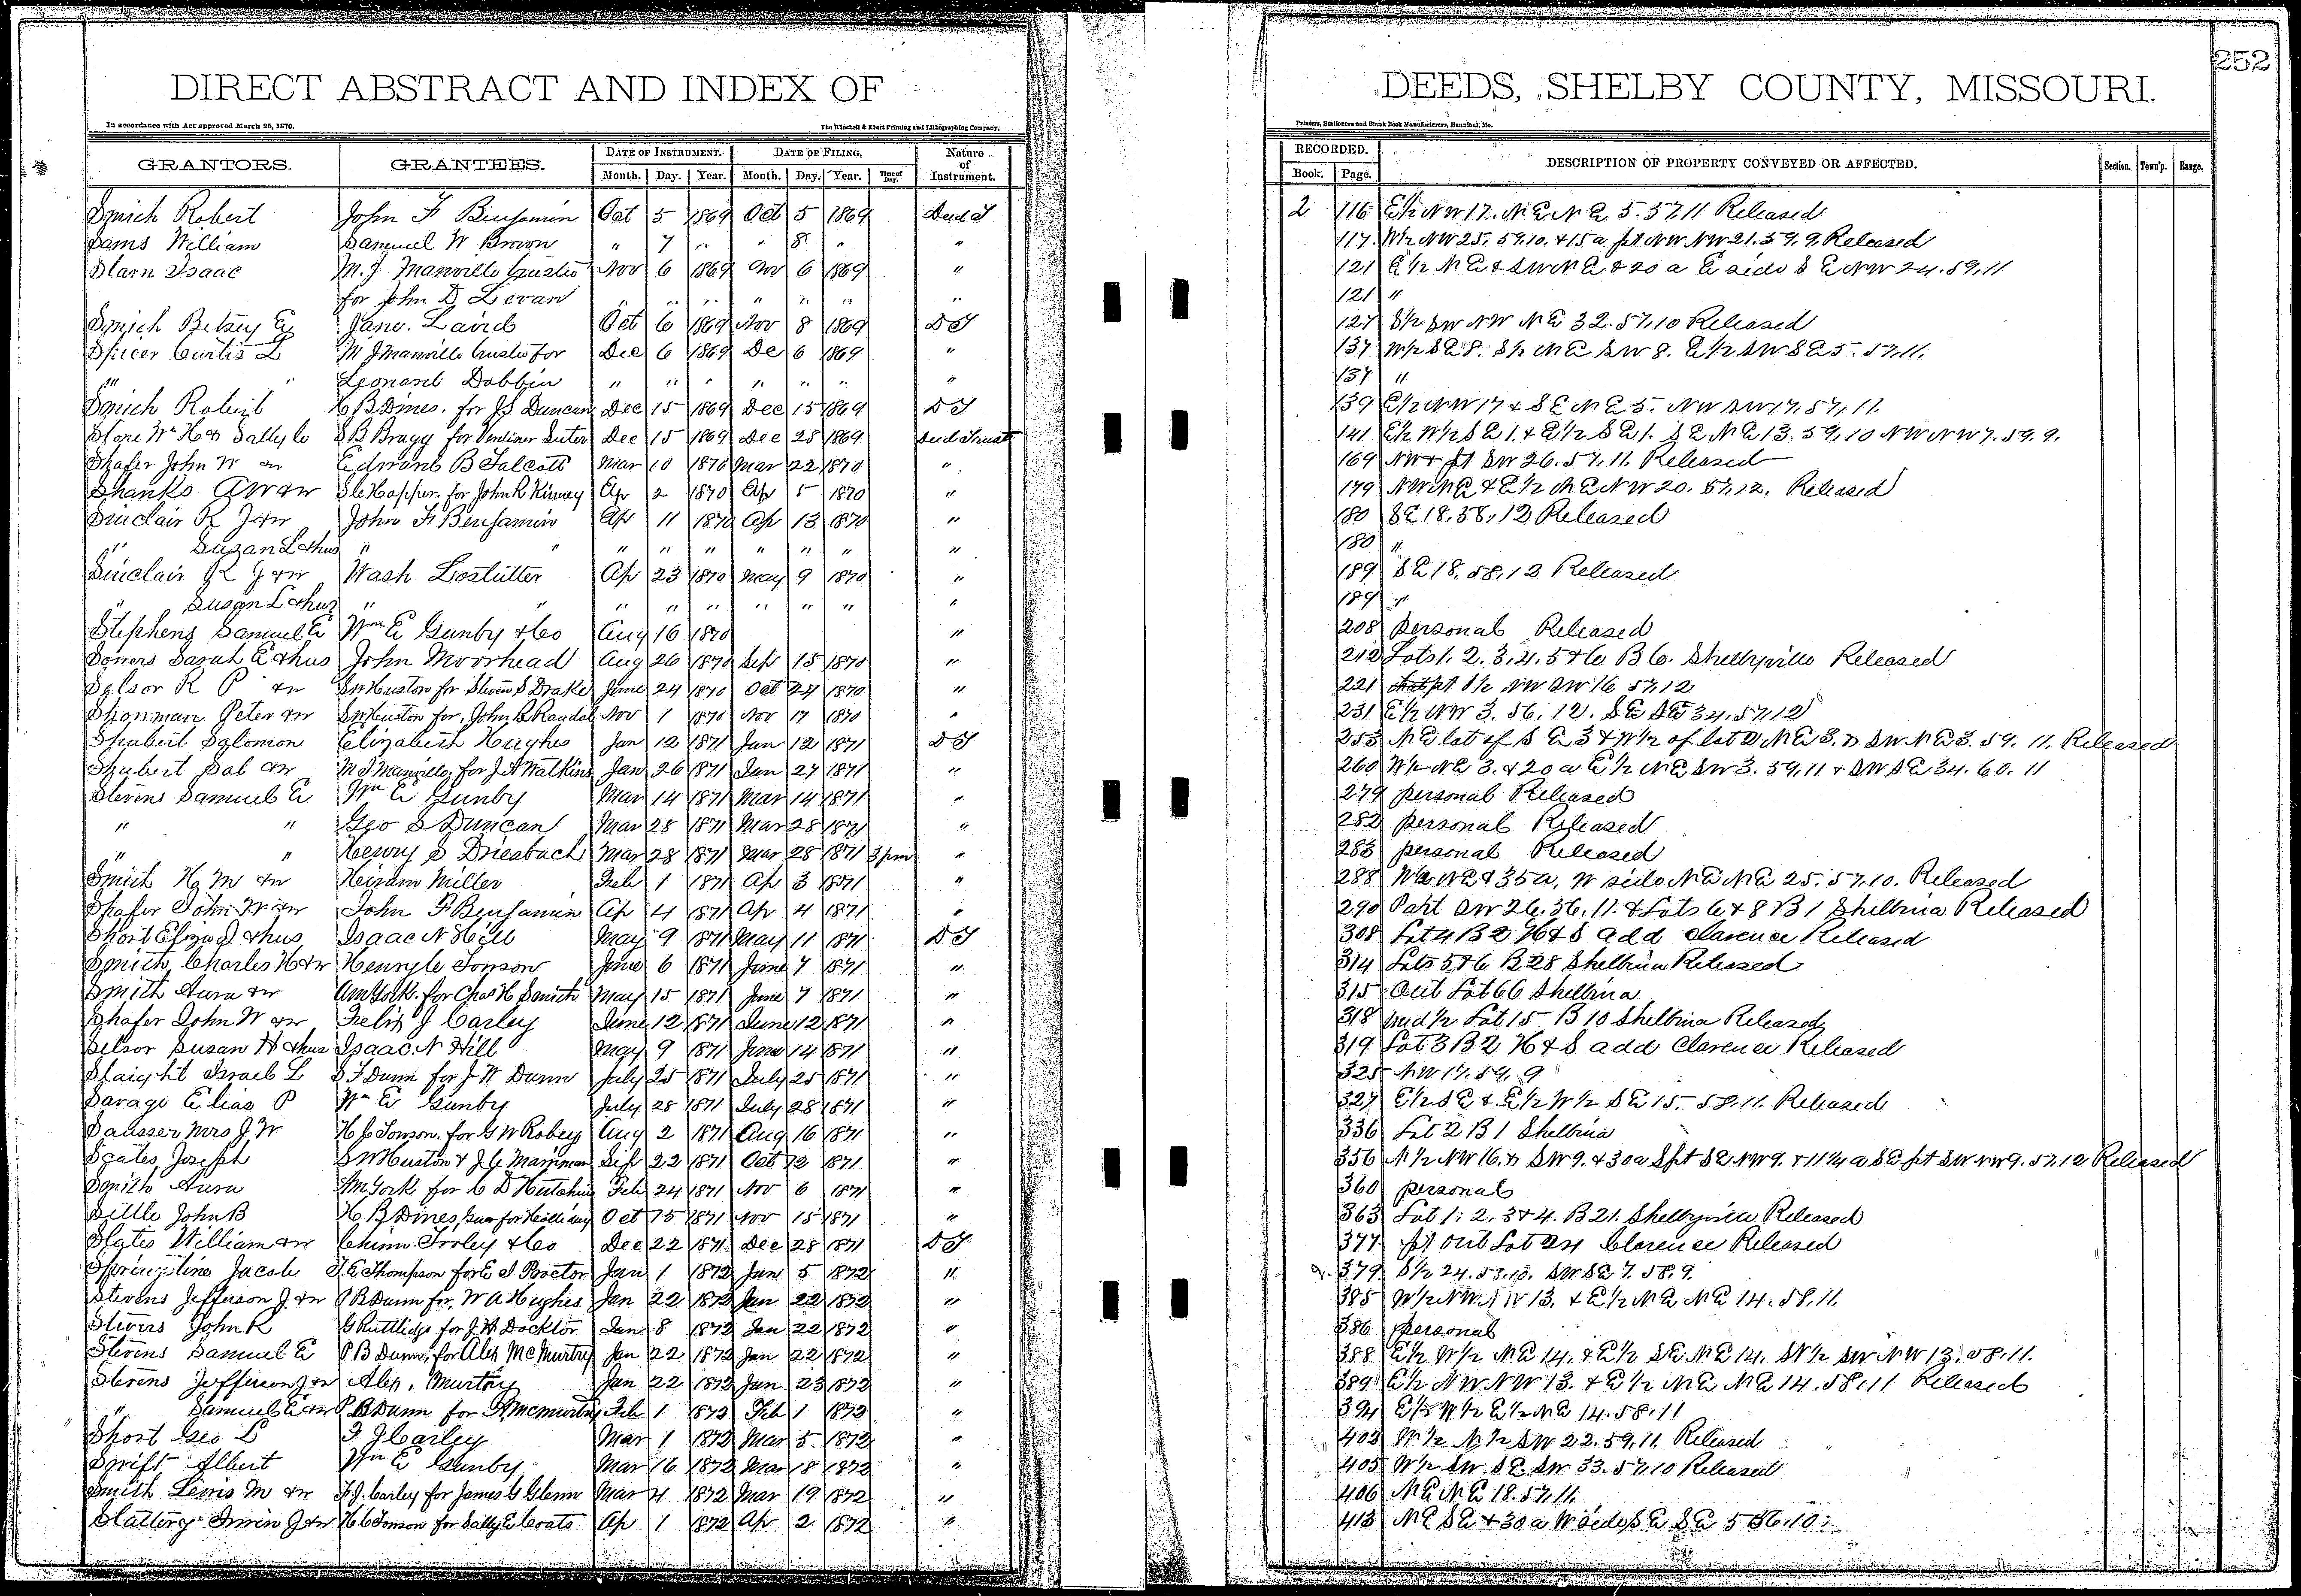 252
DIRECT ABSTRACT AND INDEX OF DEEDS, SHELBY COUNTY, MISSOURI.
In accordance with Act approved March 25, 1870. The Winchell & Ebert Printing and Lithographing Company, Printers, Stationers and Blank Book Manufacturers, Hannibal, Mo.
GRANTORS. GRANTEES. DATE OF INSTRUMENT. DATE OF FILING. Nature of Instrument. RECORDED. DESCRIPTION OF PROPERTY CONVEYED OR AFFECTED. Section. Town'p. Range.
Month. Day. Year. Month. Day. Year. Time of Day. Book. Page.
Smith Robert John F Benjamin Oct 5 1869 Oct 5 1869 Deed T 2 116 E½ NW 17. NE NE 5. 57.11 Released
Sams William Samuel W Brown " 7 " " 8 " " 117 W½ NW 25. 59.10. & 15a pt NW NW 21. 59. 9. Released
Starn Isaac M. J Manville trustee Nov 6 1869 Nov 6 1869 " 121 E½ NE & SW NE & 20 a E side S E NW 24. 59. 11
for John D Levan " " " " " " " 121 "
Smith Betsey E Jane. Laird Oct 6 1869 Nov 8 1869 D T 127 S½ SW NW NE 32. 57.10 Released
Spicer Curtis L M J Manville trustee for Dec 6 1869 De 6 1869 " 137 W½ SE 8. S½ NE SW 8. E½ SW SE 5. 57.11.
" " Leonard Dobbin " " " " " " " 137 "
Smith Robert H B Dines. for J S Duncan Dec 15 1869 Dec 15 1869 D T 139 E½ NW 17 & S E NE 5. NW SW 17. 57. 11.
Wm H & Sally S B Bragg for Suter Dec 15 1869 Dec 28 1869 Deed Trust 141 E½ W½ SE 1. & E½ SE 1. SE NE 13. 59. 10 NW NW 7. 59. 9.
Shafer John W &w Edward B Talcott Mar 10 1870 Mar 22 1870 " 169 NW & pt SW 26. 57. 11. Released
Shanks A W &w for John R Kinney Ap 2 1870 Ap 5 1870 " 179 NW NE & E½ NE NW 20. 57.12. Released
Sinclair R J &w John F Benjamin Ap 11 1870 Ap 13 1870 " 180 SE 18. 58. 12 Released
" Susan L &hus " " " " " " " " " 180 "
Sinclair R J &w Wash Lostutter Ap 23 1870 May 9 1870 " 189 SE 18. 58. 12 Released
" Susan L &hus " " " " " " " " " 189 "
Stephens Samuel E Wm E Gunby & Co Aug 16 1870 " 208 personal Released
Sowers Sarah E &hus John Moorhead Aug 26 1870 Sep 15 1870 " 212 Lots 1. 2. 3. 4. 5 & 6 B 6. Shelbyville Released
Salsor R P &w S W Huston for Steven S Drake June 24 1870 Oct 24 1870 " 221 pt S½ NW SW 16 57.12
Shonman Peter &w S W Huston for, John R Randol Nov 1 1870 Nov 17 1870 " 231 E½ NW 3. 56. 12. SE SE 34. 57.12
Shubert Solomon Elizabeth Hughes Jan 12 1871 Jan 12 1871 D T 253 NE lot of S E 3 & W½ of lot 2 NE 3. & SW NE 3. 59. 11. Released
Shubert Sol &w M J Manville, for J A Watkins Jan 26 1871 Jan 27 1871 " 260 W½ NE 3. & 20 a E½ NE SW 3. 59.11 & SW SE 34. 60. 11
Stevens Samuel E Wm E Gunby Mar 14 1871 Mar 14 1871 " 279 personal Released
" " Geo S Duncan Mar 28 1871 Mar 28 1871 " 282 personal Released
" " Henry S Driesbach Mar 28 1871 Mar 28 1871 3 pm " 283 personal Released
Smith H M &w Hiram Miller Feb 1 1871 Ap 3 1871 " 288 W½ NE & 35a, W side NE NE 25. 57. 10. Released
Shafer John W &w John F Benjamin Ap 4 1871 Ap 4 1871 " 290 Part SW 26. 56. 11. & Lots 6 & 8 B 1 Shelbina Released
Short Eliza J &hus Isaac N Hill May 9 1871 May 11 1871 D T 308 Lot 4 B 2 H & S add Clarence Released
Smith Charles H &w Henry C Tonson June 6 1871 June 7 1871 " 314 Lots 5 & 6 B 28 Shelbina Released
Smith Aura &w A M York. for Chas H Smith May 15 1871 June 7 1871 " 315 Out Lot 66 Shelbina
Shafer John W &w Felix J Carley June 12 1871 June 12 1871 " 318 und ½ Lot 15 B 10 Shelbina Released
Selsor Susan H &hus Isaac N Hill May 9 1871 June 14 1871 " 319 Lot 3 B 2 H & S add Clarence Released
Slaight Israel L S F Dunn for J W Dunn July 25 1871 July 25 1871 " 325 NW 17. 59. 9
Savage Elias P Wm E Gunby July 28 1871 July 28 1871 " 327 E½ SE & E½ W½ SE 15. 58. 11. Released
Sausser Mrs J W H C Tonson. for G W Robey Aug 2 1871 Aug 16 1871 " 336 Lot 2 B 1 Shelbina
Scates Joseph S W Huston & J C Marriman Sep 22 1871 Oct 12 1871 " 356 N½ NW 16. & SW 9. & 30a S pt SE NW 9. & 11¼ a SE pt SW NW 9. 57.12 Released
Smith Aura A M York for C D Hutchins Feb 24 1871 Nov 6 1871 " 360 personal
Settle John B H B Dines, for Oct 15 1871 Nov 15 1871 " 363 Lot 1. 2. 3 & 4. B 21. Shelbyville Released
Slates William &w Chinn. Tooley & Co Dec 22 1871 Dec 28 1871 D T 377 pt out Lot 24 Clarence Released
Springstine Jacob J. E Thompson for E J Proctor Jan 1 1872 Jan 5 1872 " 379 S½ 24. 58. 10. SW SE 7. 58. 9.
Stevens Jefferson J. &w P B Dunn for, W A Hughes Jan 22 1872 Jan 22 1872 " 385 W½ NW NW 13. & E½ NE NE 14. 58. 11.
Stivers John R G Ruttlidge for J H Docktor Jan 8 1872 Jan 22 1872 " 386 personal
Stevens Samuel E P B Dunn, for Alex McMurtry Jan 22 1872 Jan 22 1872 " 388 E½ W½ NE 14. & E½ SE NE 14. W½ SW NW 13. 58. 11.
Stevens Jefferson J &w Alex, Murtry Jan 22 1872 Jan 23 1872 " 389 E½ NW NW 13. & E½ NE NE 14. 58. 11 Released
" Samuel E &w P B Dunn for A McMurtry Feb 1 1872 Feb 1 1872 " 394 E½ W½ E½ NE 14. 58. 11
Short Geo L F J Carley Mar 1 1872 Mar 5 1872 " 402 W½ N½ SW 22. 59. 11. Released
Swift Albert Wm E Gunby Mar 16 1872 Mar 18 1872 " 405 W½ SW. SE. SW 33. 57.10 Released
Smith Lewis M &w F J. Carley for James G Glenn Mar 4 1872 Mar 19 1872 " 406 NE NE 18. 57. 11.
Slattery Irvin J &w H C Tonson for Sally E Coats Ap 1 1872 Ap 2 1872 " 413 NE SE & 30 a W side SE SE 5 56. 10.